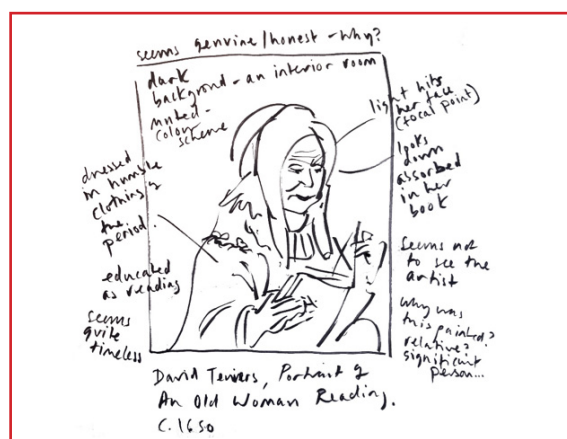 seems genuine/honest - why?
dark
background - an interior room
muted -
colour
scheme
light hits
her face
(focal point)
looks
down
assorbed
in her
book
dressed
in humble
clothing of
the
period.
educated
as reading
seems
quite
timeless
Seems not
to see the
artist
why was
this painted?
relative?
significant
person...
David Teniers, Portrait of
An Old Woman Reading.
C. 1650